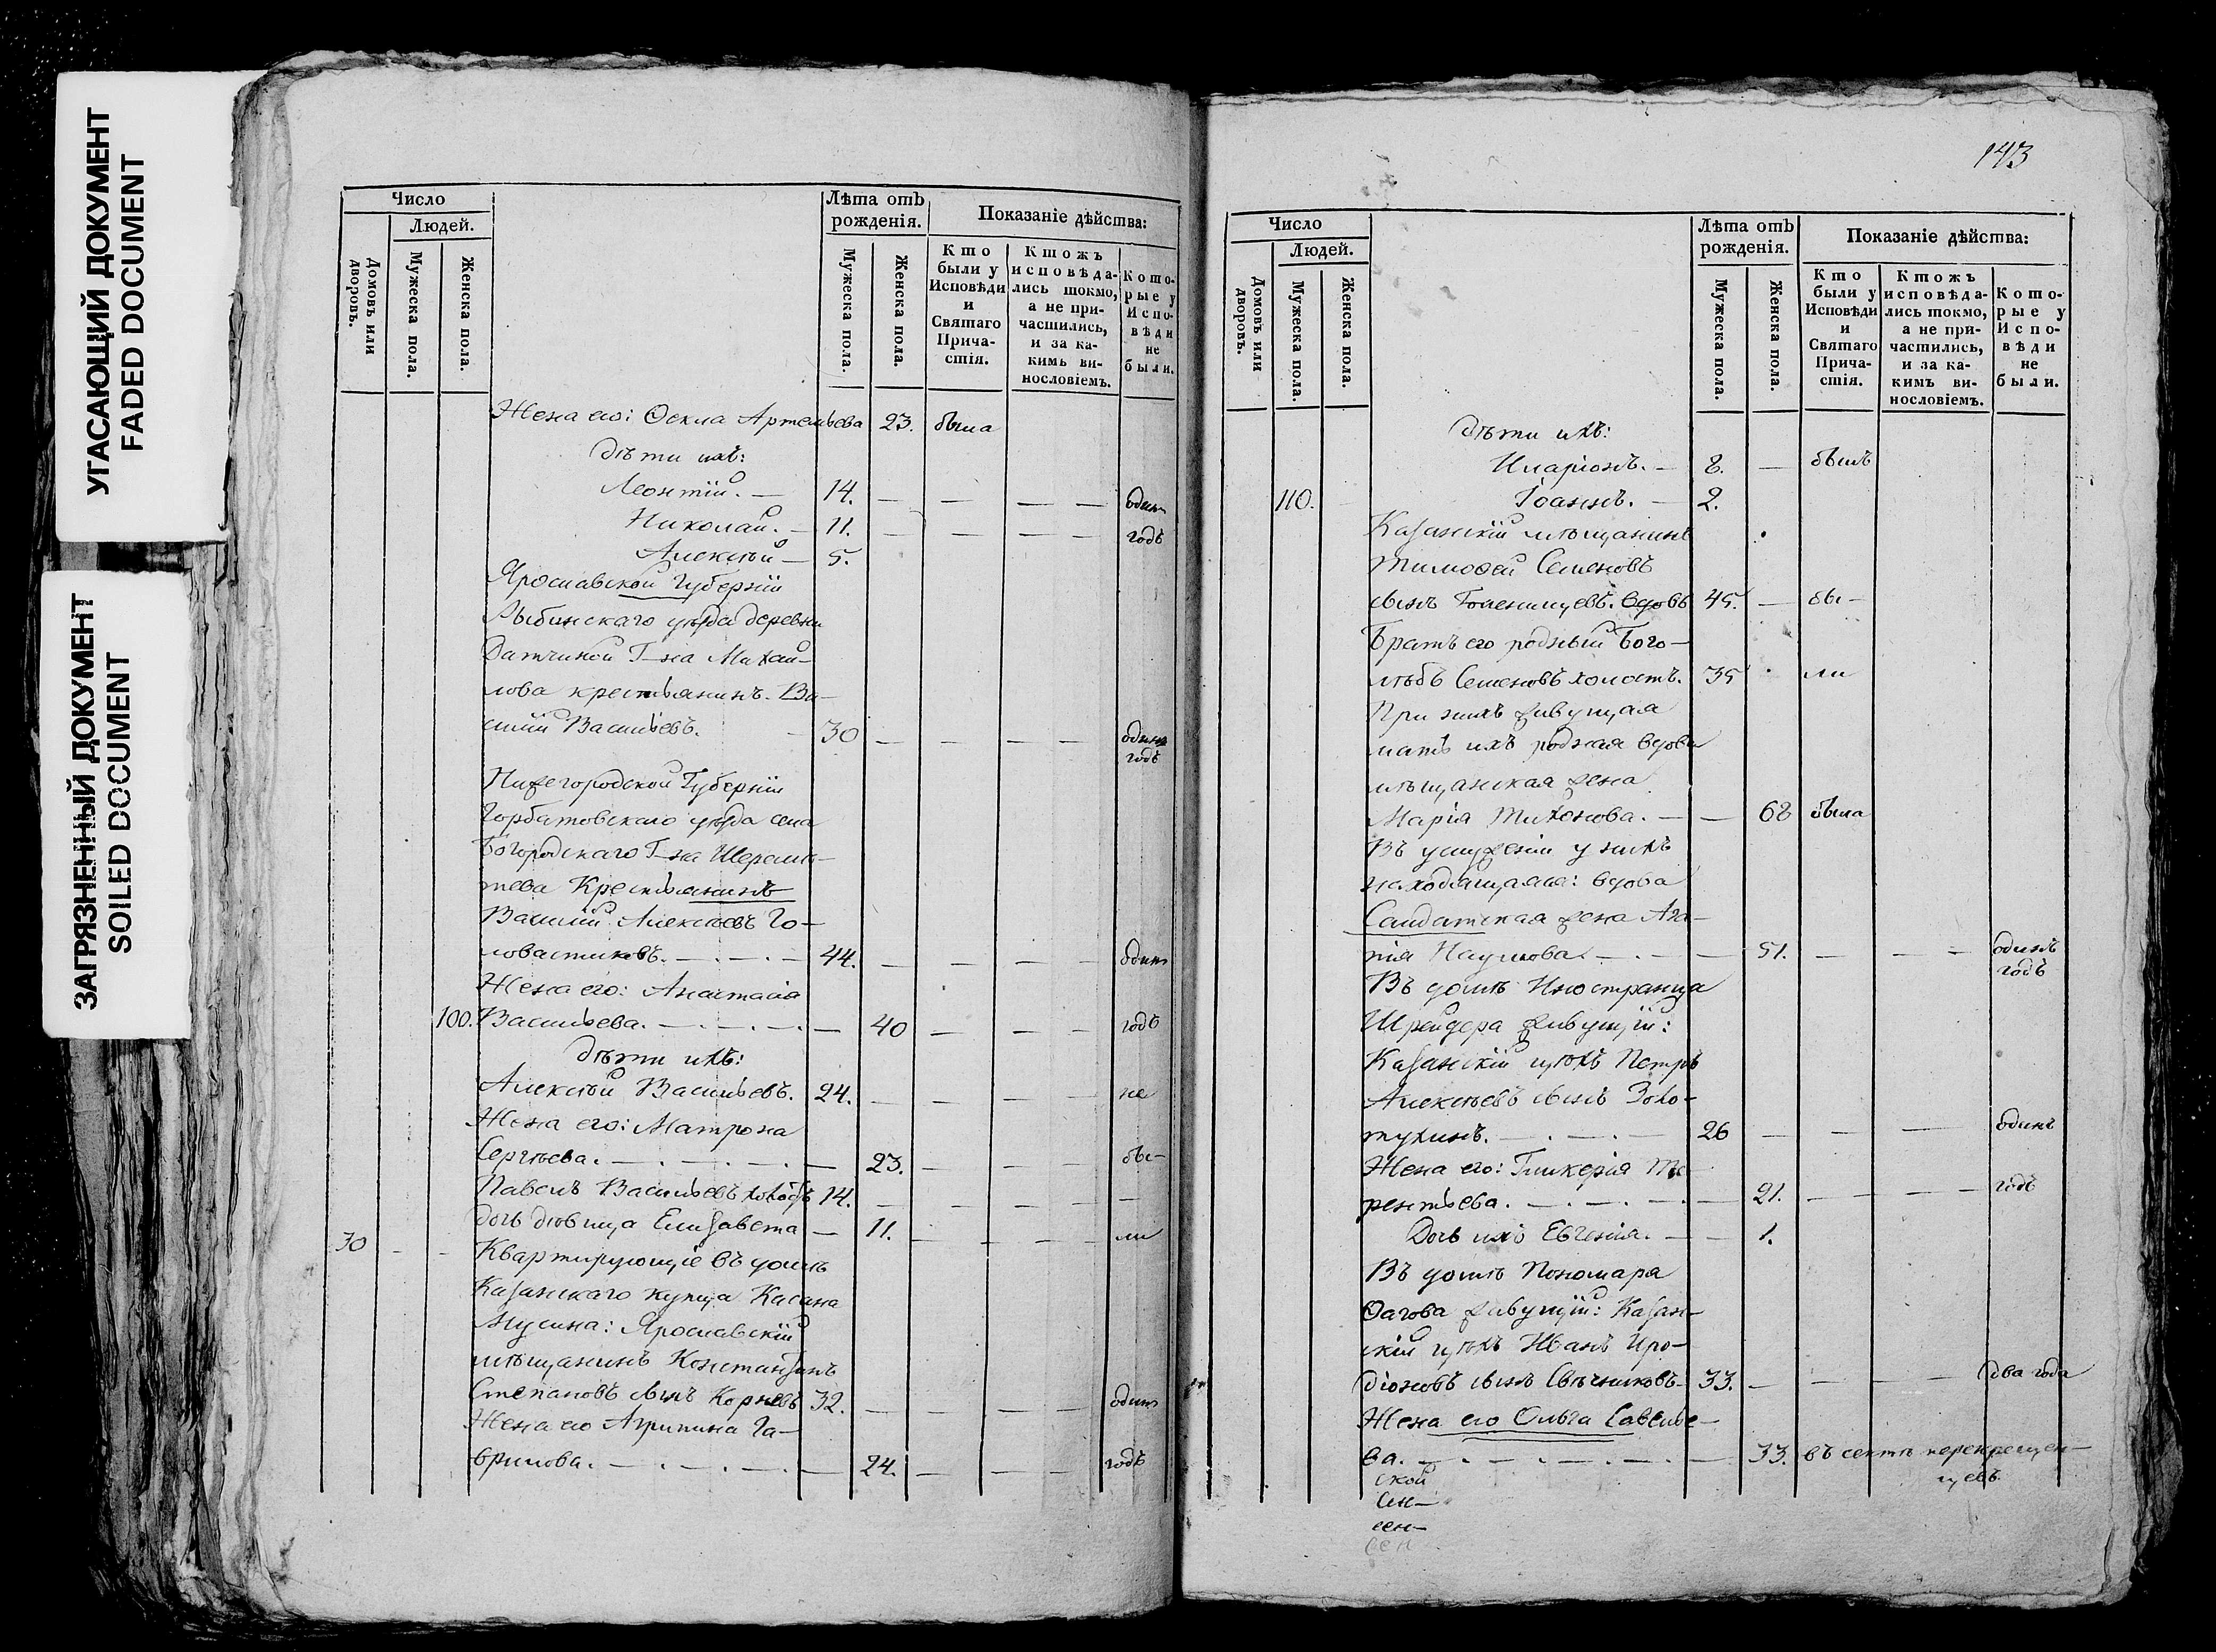 УГАСАЮЩИЙ ДОКУМЕНТ
FADED DOCUMENT
ЗАГРЯЗНЕННЫЙ ДОКУМЕНТ
SOILED DOCUMENT
Число
Людей.
Домовъ или дворовъ.
Мужеска пола.
Женска пола.
Лѣта отъ рожденія.
Мужеска пола.
Женска пола.
Показаніе дѣйства:
Кто были у Исповѣди и Святаго Причастія.
Ктожъ исповѣдались токмо, а не причастились, и за какимъ винословіемъ.
Которые у Исповѣди не были.
Жена его: Ѳекла Артемьева 23. была
дѣти ихъ:
Леонтій. — 14. — — — — одинъ
Николай. — 11. — — — — годъ
Алексѣй — 5.
Ярославской Губерніи
Рыбинскаго уѣзда деревни
Г-на Михай-
лова крестьянинъ. Ва-
силій Васильевъ. — 30 — — — — одинъ годъ
Нижегородской Губерніи
Горбатовскаго уѣзда села
Богородскаго Г-на Шереме-
тева Крестьянинъ
Василій Алексѣевъ Го-
ловастиковъ. — . — . — 44. — — — — одинъ
Жена его: Анастасія
100. Васильева. — . — . — . — 40 — — — годъ
дѣти ихъ:
Алексѣй Васильевъ. 24. — — — — не
Жена его: Матрона
Сергѣева. — . — . — . — 23. — — — бы-
Павелъ Васильевъ холостъ 14. — — — — —
дочь дѣвица Елизавета — 11. — — — ли
30 - - Квартирующіе въ домѣ
Казанскаго купца Хасана
Мусина: Ярославскій
мѣщанинъ Константинъ
Степановъ сынъ Корневъ 32. — — — — одинъ
Жена его Агрипина Га-
врилова. — . — . — . — 24. — — — годъ
143
Число
Людей.
Домовъ или дворовъ.
Мужеска пола.
Женска пола.
Лѣта отъ рожденія.
Мужеска пола.
Женска пола.
Показаніе дѣйства:
Кто были у Исповѣди и Святаго Причастія.
Ктожъ исповѣдались токмо, а не причастились, и за какимъ винословіемъ.
Которые у Исповѣди не были.
дѣти ихъ:
Иларіонъ. — 8. — былъ
110. Іоаннъ. — 2.
Казанскій мѣщанинъ
Тимофей Семеновъ
сынъ Голенищевъ. вдовъ 45. — бы-
Братъ его родный Бого-
лѣбъ Семеновъ холостъ. 35 ли
При нихъ живущая
мать ихъ родная вдова
мѣщанская жена
Марія Тихонова. — — 68 была
Въ услуженіи у нихъ
находящаяся: вдова
Солдатская жена Ага-
пія Наумова. — . — — 51. — — — одинъ годъ
Въ домѣ Иностранца
Шрейдера живущій:
Казанскій цѣхъ Петръ
Алексѣевъ сынъ Золо-
тухинъ. — . — . — 26 — — — одинъ
Жена его: Гликерія Те-
рентьева. — . — . — . — 21. — — — — годъ
Дочь ихъ Евгенія. — — 1.
Въ домѣ Пономаря
живущій: Казан-
скій цѣхъ Иванъ Иро-
діоновъ сынъ Свѣчниковъ. 33. — — — — два года
Жена его Ольга Савелье-
ва. — . — . — . — . — 33. въ сектѣ перекрещен-
цевъ.
ской